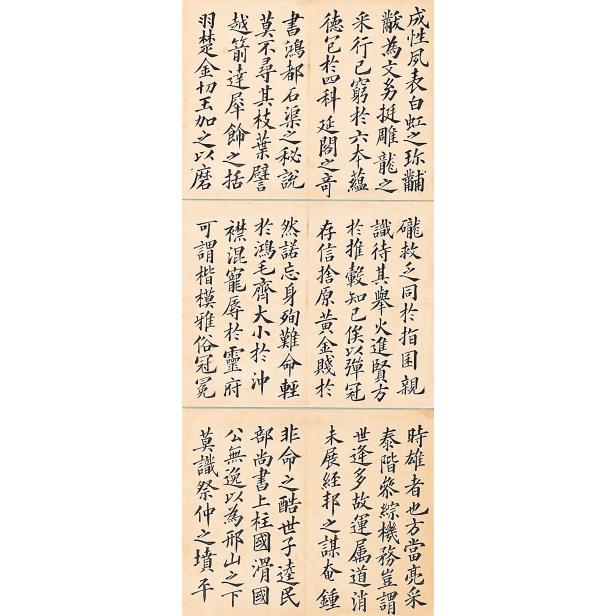 成性夙表白虹之珍黼
黻為文幼挺雕龍之
采行已窮於六本蘊
德包於四科延閣之奇
書鴻都石渠之秘說
莫不尋其枝葉譬
越箭達犀飾之括
羽楚金切玉加之以磨
礲救乏同於指囷親
識待其舉火進賢方
於推轂知已俟以彈冠
存信捨原黃金賤於
然諾忘身殉難命輕
於鴻毛齊大小於沖
襟混寵辱於靈府
可謂楷模雅俗冠冕
時雄者也方當亮采
泰階參綜機務豈謂
世逢多故運属道消
未展經邦之謀奄鍾
非命之酷世子逵民
部尚書上柱國滑國
公無逸以為邢山之下
莫識祭仲之墳平